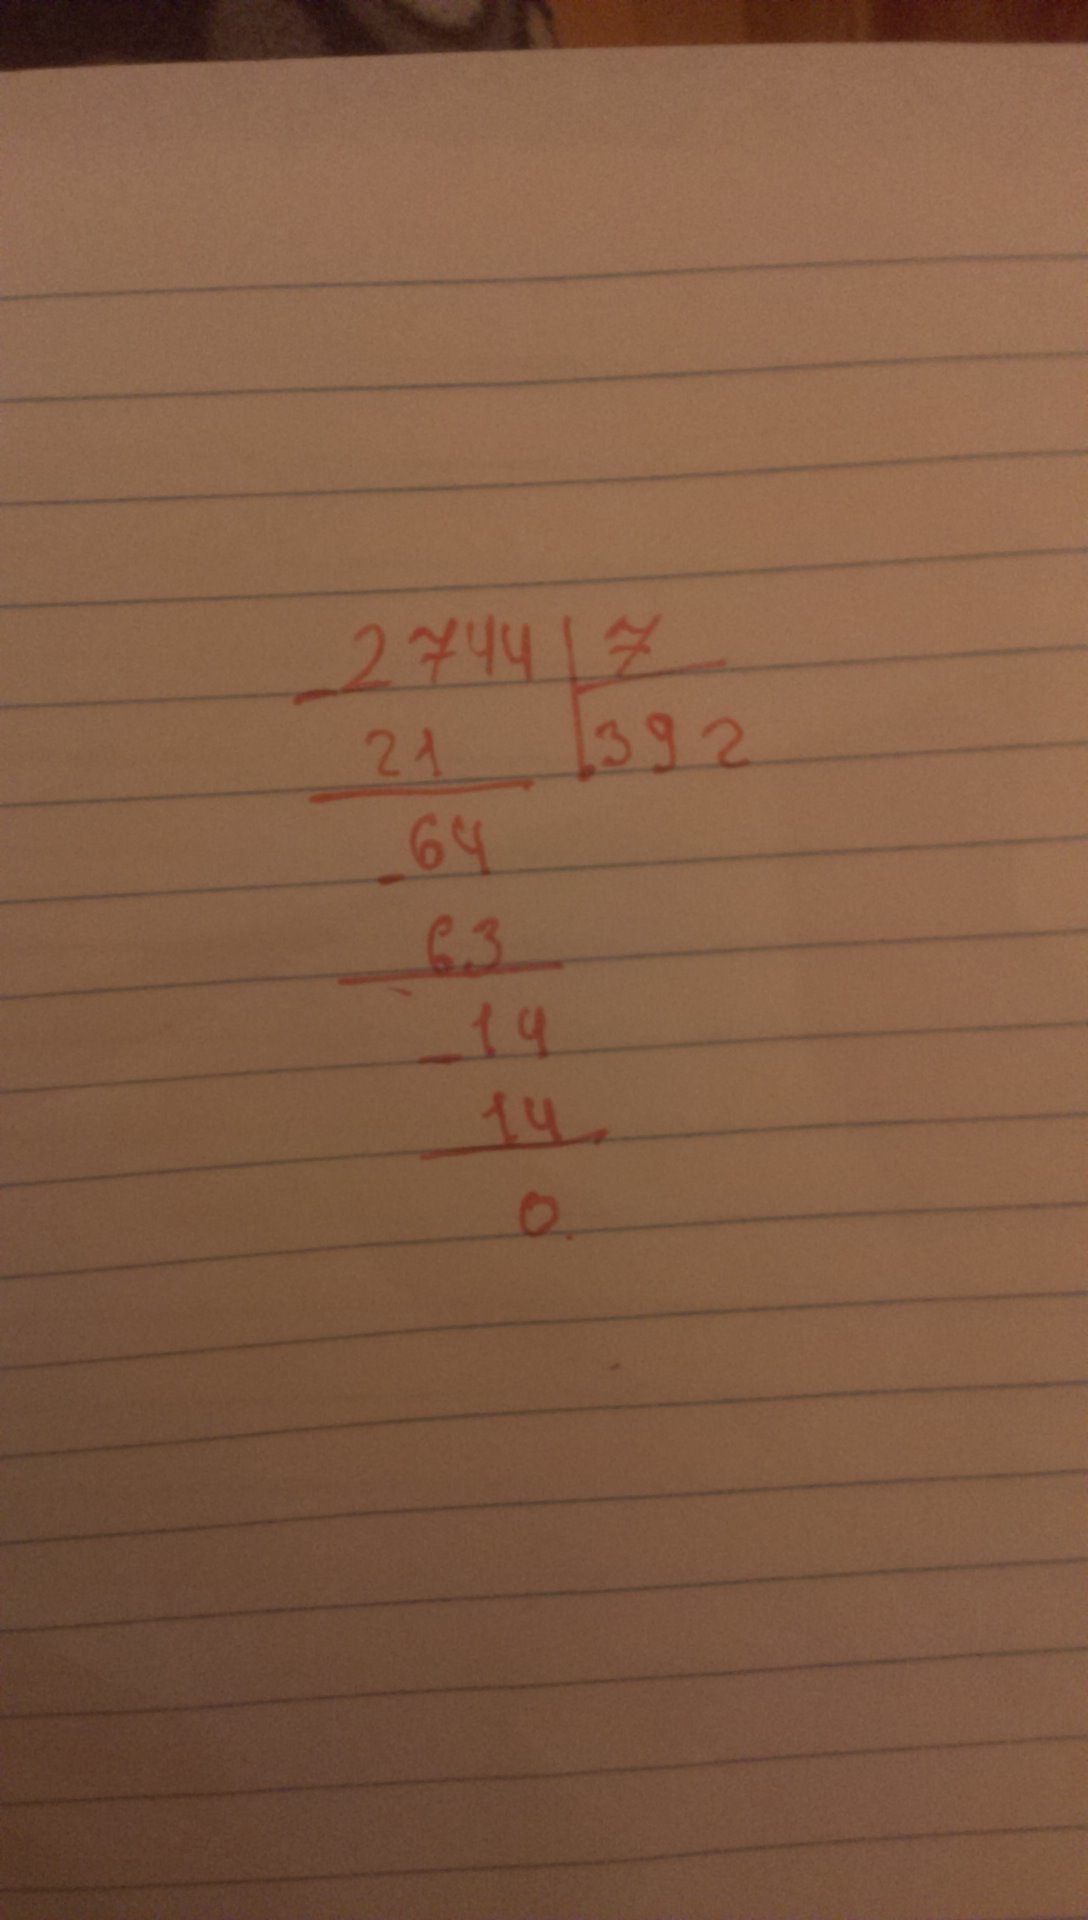 _2744 | 7
21 | 392
_64
63
_14
14
0